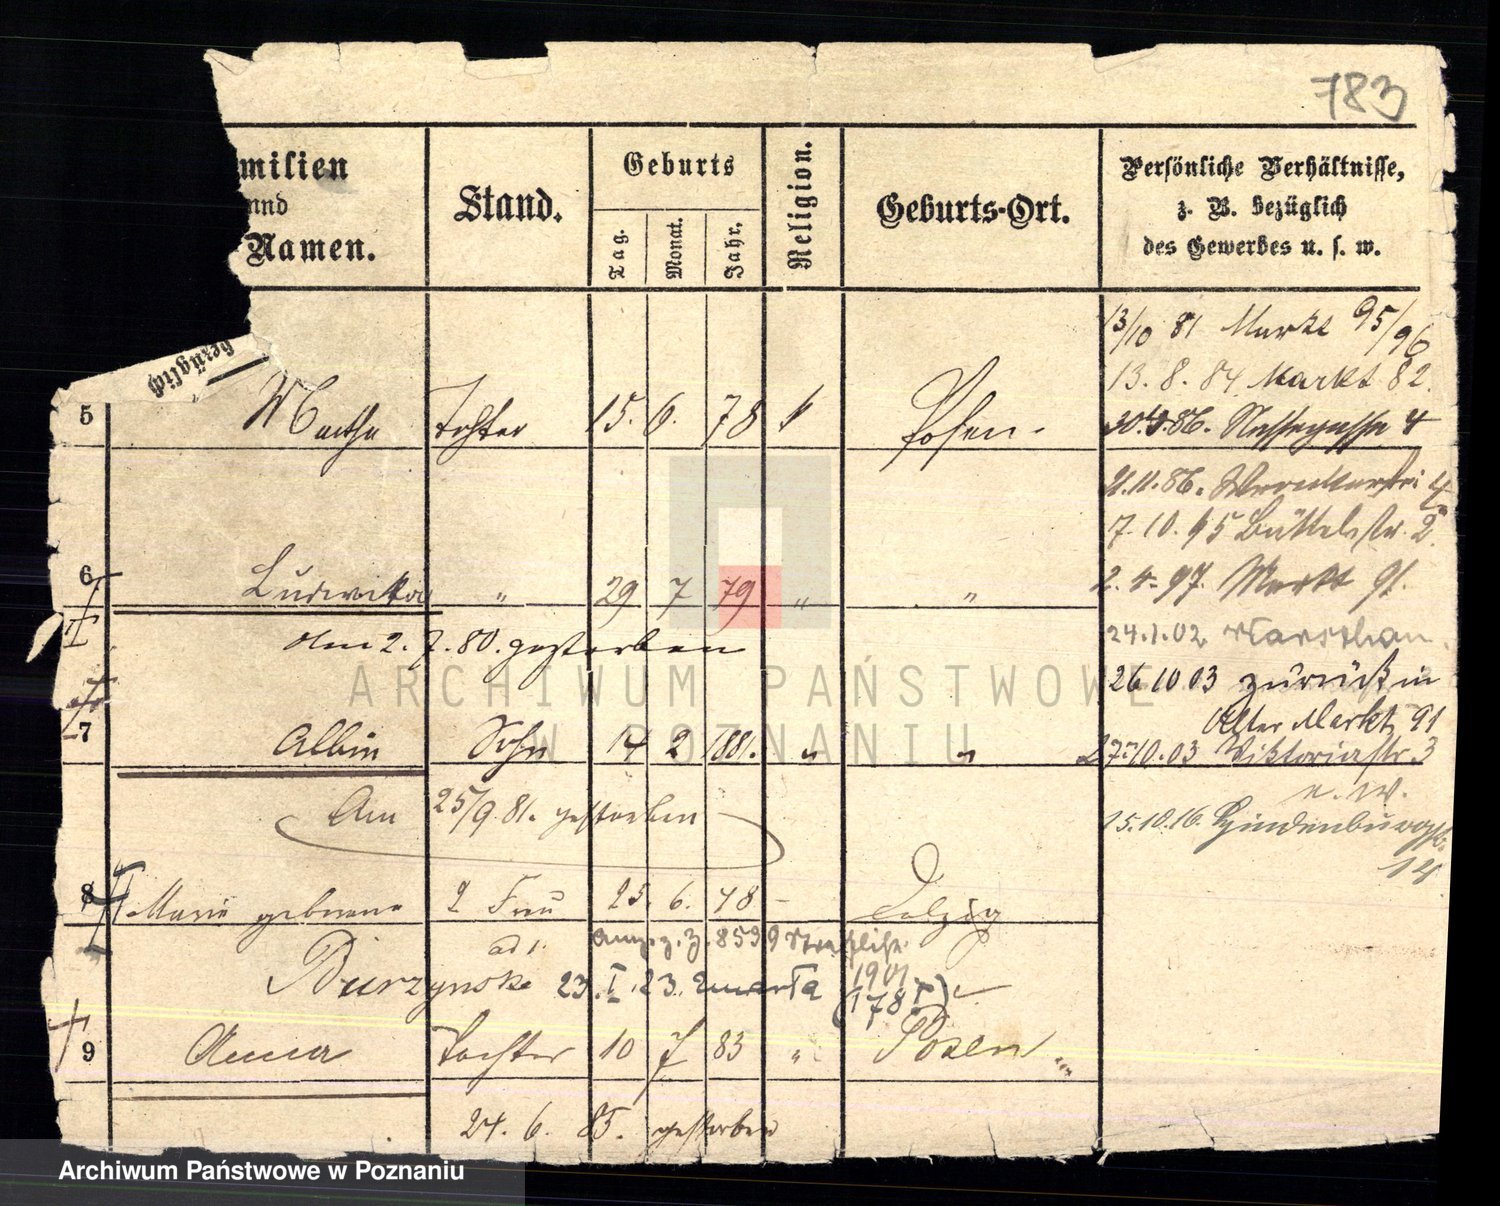 783
milien
und
Namen.
Stand.
Geburts
Tag.
Monat.
Jahr.
Religion.
Geburts-Ort.
Persönliche Verhältnisse,
z. B. bezüglich
des Gewerbes u. s. w.
bezüglich
13/10 81 Markt 95/96
13. 8. 84 Markt 82.
5 Martha Tochter 15. 6. 78 k Posen.
86. 4
11. 86. 4
7. 10. 95 Büttelstr. 2.
6 Ludwika " 29 7 79 " "
2. 4. 97. Markt 91.
Am 2. 7. 80. gestorben
24.1.02 Warschau
26 10 03 zurück in
Alter Markt 91
7 Albin Sohn 14 2 1881. " "
27.10.03 Viktoriastr. 3
Am 25/9 81. gestorben
15.10.16. Hindenburgstr.
14
8 Marie geborene 2 Frau 25. 6. 78 - Dolzig
ad 1. 8599
Burzynska 23. I. 23.
1901
9 Anna Tochter 10 7 83 " Posen
24. 6. 85. gestorben
ARCHIWUM PAŃSTWOWE
W POZNANIU
Archiwum Państwowe w Poznaniu